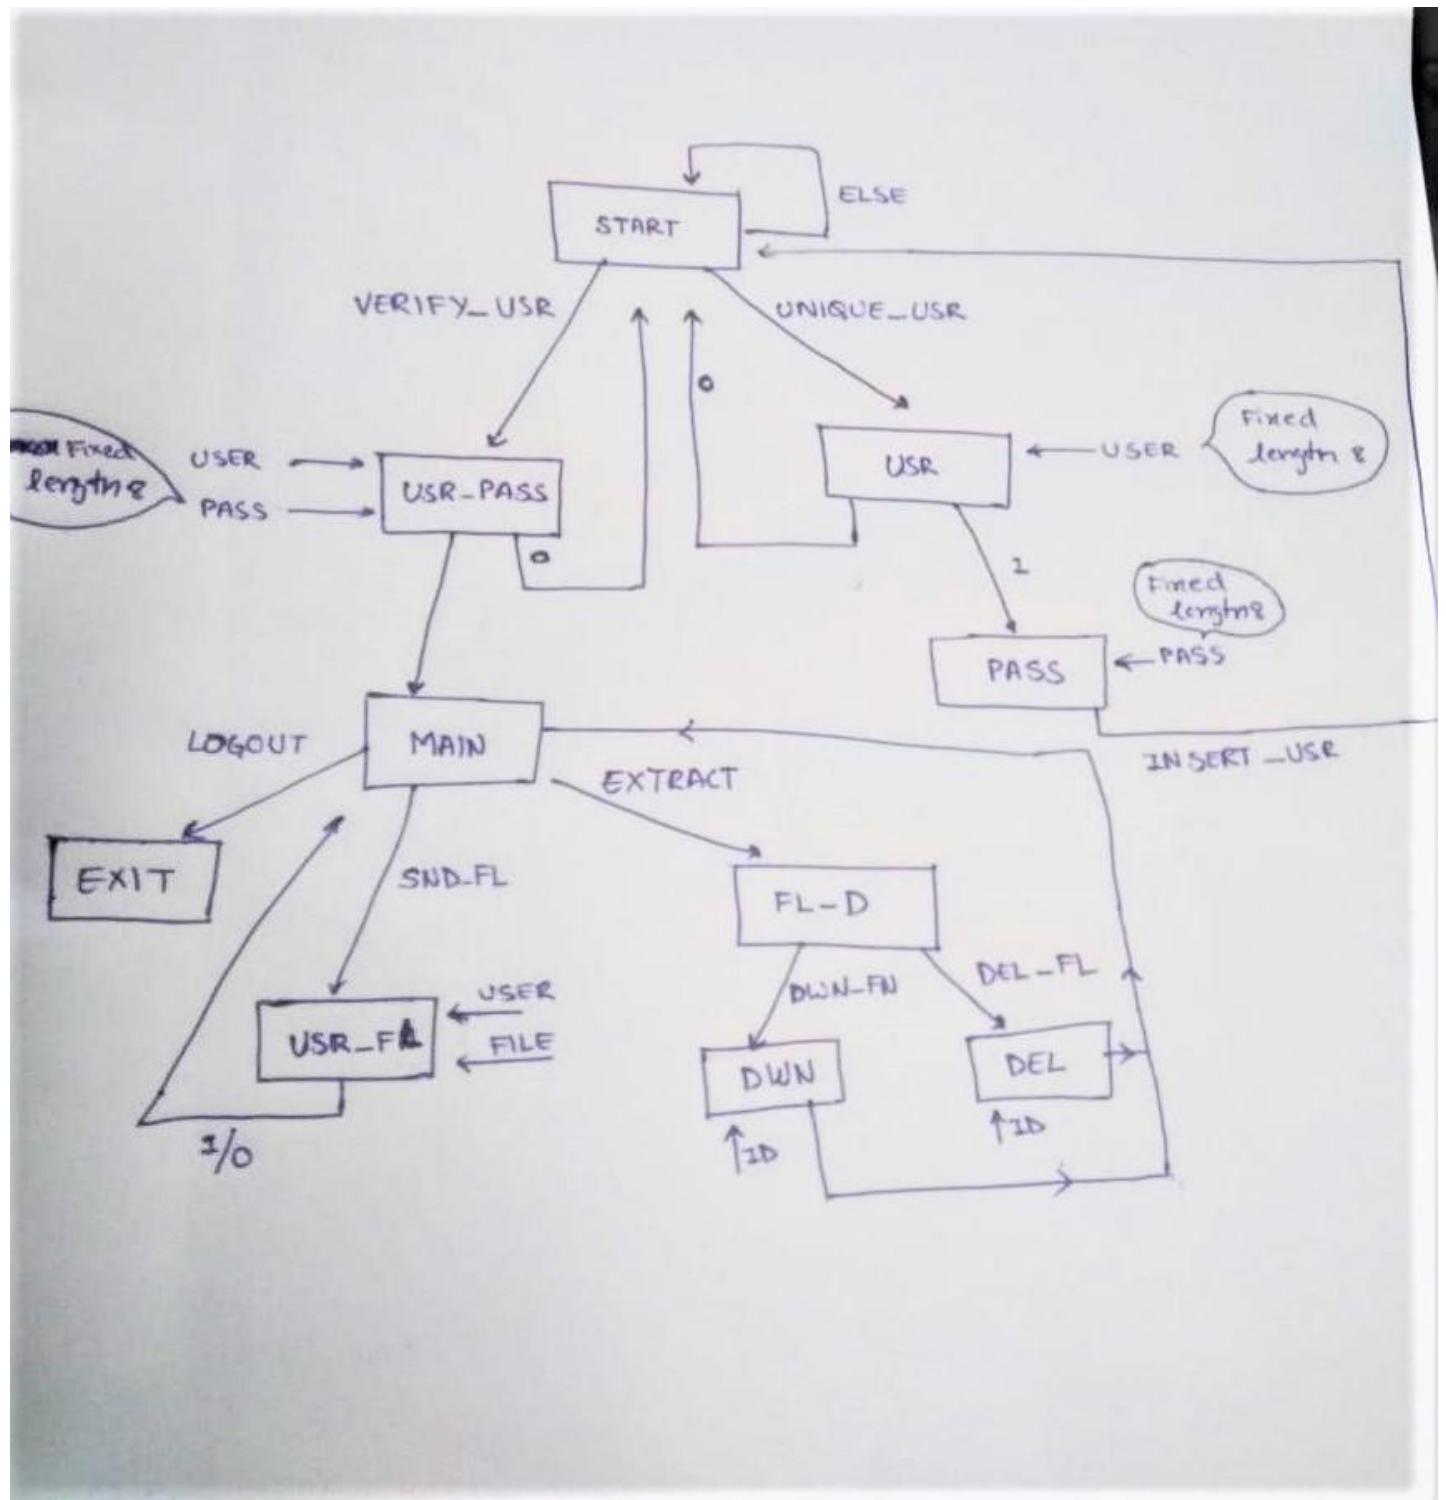 ELSE
START
VERIFY_USR
UNIQUE_USR
0
Fixed
length 8
USER
PASS
USR-PASS
0
USR
USER
Fixed
length 8
1
Fixed
length8
PASS
PASS
INSERT_USR
LOGOUT
MAIN
EXTRACT
EXIT
SND_FL
FL-D
DWN_FN
DEL_FL
USR_FL
USER
FILE
DWN
DEL
ID
ID
1/0